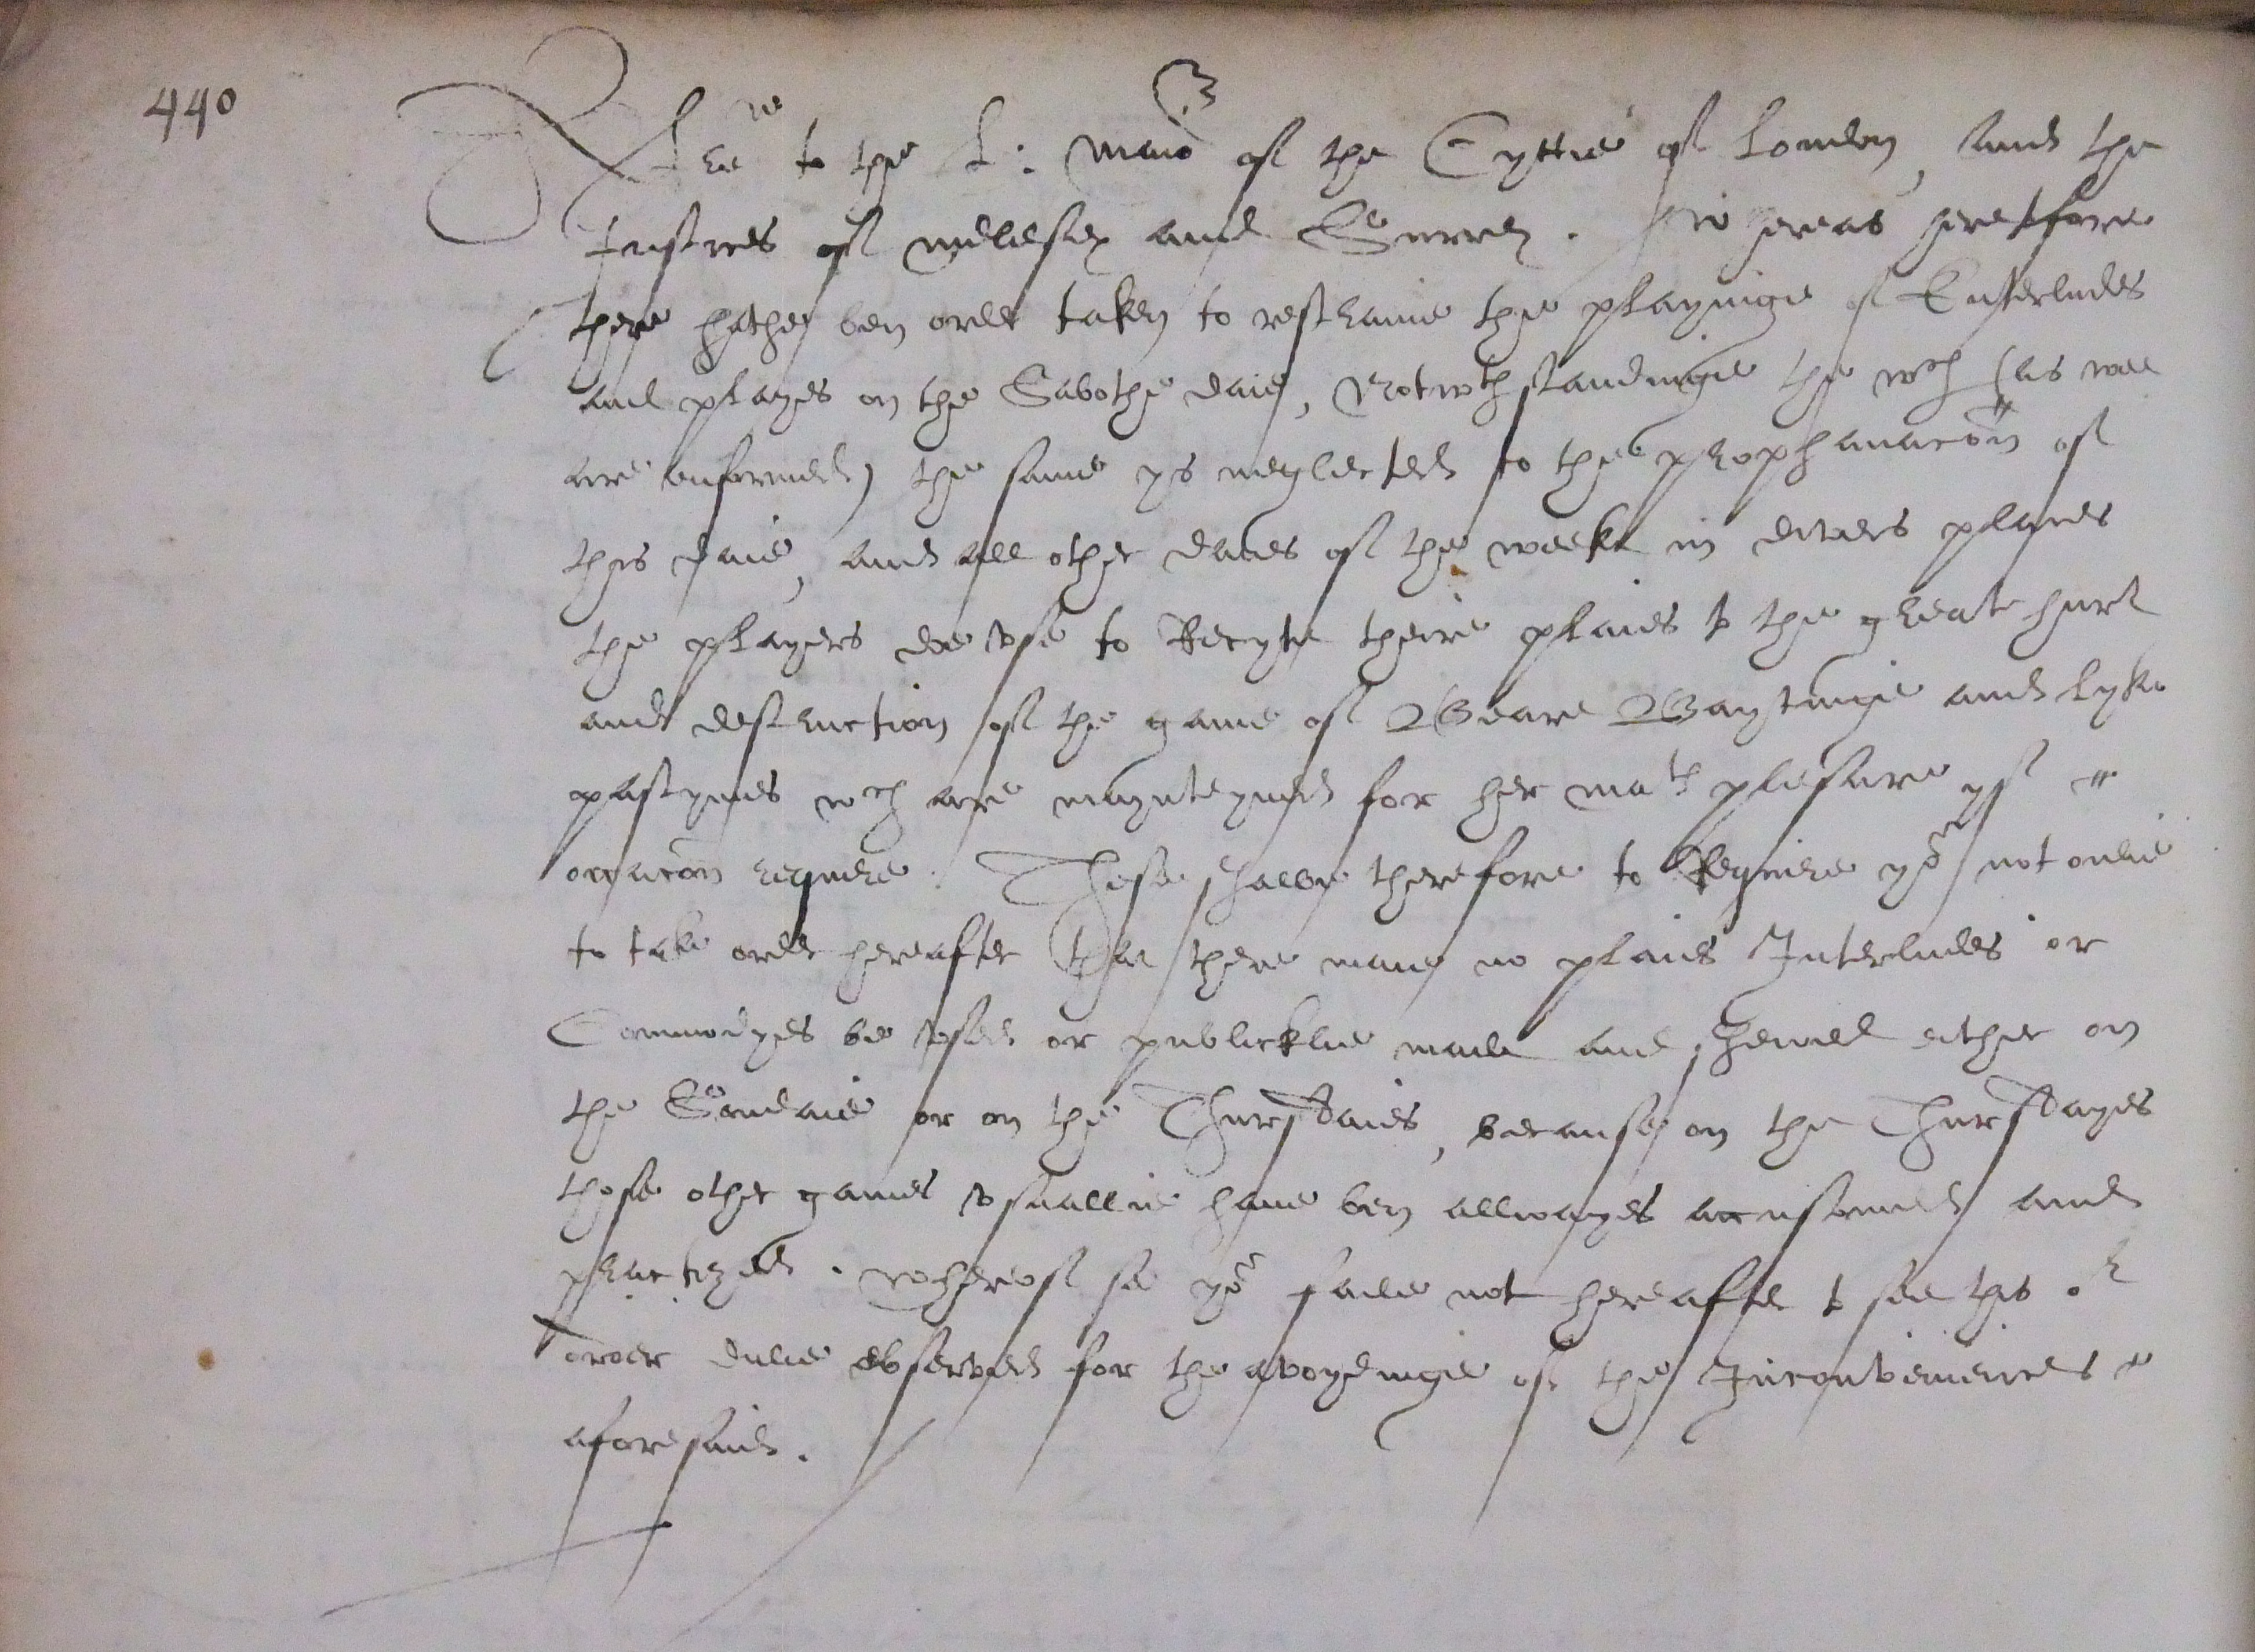 440
A lre to the L: Maior of the Cyttie of London, and the
Justices of Midlesex and Surrey. Whereas heretofore
there hathe ben order taken to restraine the playinge of Enterludes
and playes on the Sabothe daie, Notwthstandinge the wch (as wee
are enformed) the same ys neglected to the prophanacon of
this daie, and all other daies of the weeke in divers places
the players doe vse to Recyte theire plaies to the greate hurt
and destruction of the game of Beare Baytinge and lyke
pastymes wch are maynteyned for her mats pleasure yf
occacon require. These shalbe therefore to Require yo not onlie
to take order hereafter that there maye no plaies Interludes or
Commodyes be vsed or publicklie made and shewed either on
the Sondaie or on the Thursdaies, because on the Thursdayes
those other games vsuallie haue ben allwayes accustomed and
practized. Whereof se yo faile not hereafter to see this or
order dulie observed for the avoydinge of the Inconveniences
aforesaid.